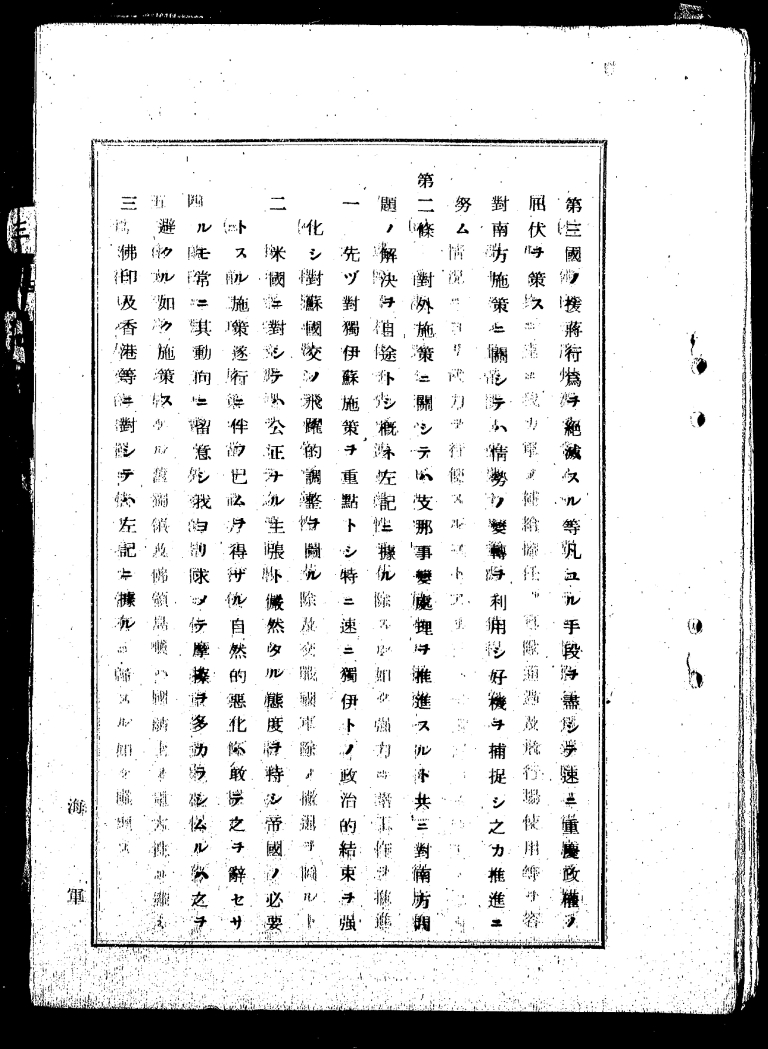 第三國ノ援蔣行爲ヲ絶滅スル等凡ユル手段ヲ盡シテ速ニ重慶政權ノ
屈伏ヲ策ス
對南方施策ニ關シテハ情勢ノ變轉ヲ利用シ好機ヲ捕捉シ之カ推進ニ
努ム
第二條 對外施策ニ關シテハ支那事變處理ヲ推進スルト共ニ對南方問
題ノ解決ヲ目途トシ概ネ左記ニ據ル
一 先ヅ對獨伊蘇施策ヲ重點トシ特ニ速ニ獨伊トノ政治的結束ヲ强
化シ對蘇國交ノ飛躍的調整ヲ圖ル
二 米國ニ對シテハ公正ナル主張ト儼然タル態度ヲ持シ帝國ノ必要
トスル施策遂行ニ伴フ已ムヲ得ザル自然的惡化ハ敢テ之ヲ辭セサ
ルモ常ニ其動向ニ留意シ我ヨリ求メテ摩擦ヲ多カラシムルハ之ヲ
避クル如ク施策ス
三 佛印及香港等ニ對シテハ左記ニ據ル
海軍